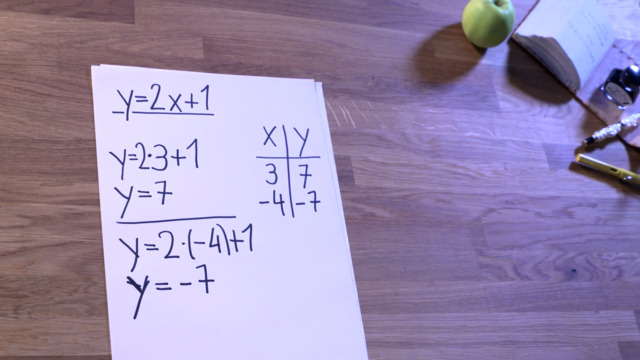 y=2x+1
y=2·3+1
y=7
y=2·(-4)+1
y=-7
x y
3 7
-4 -7